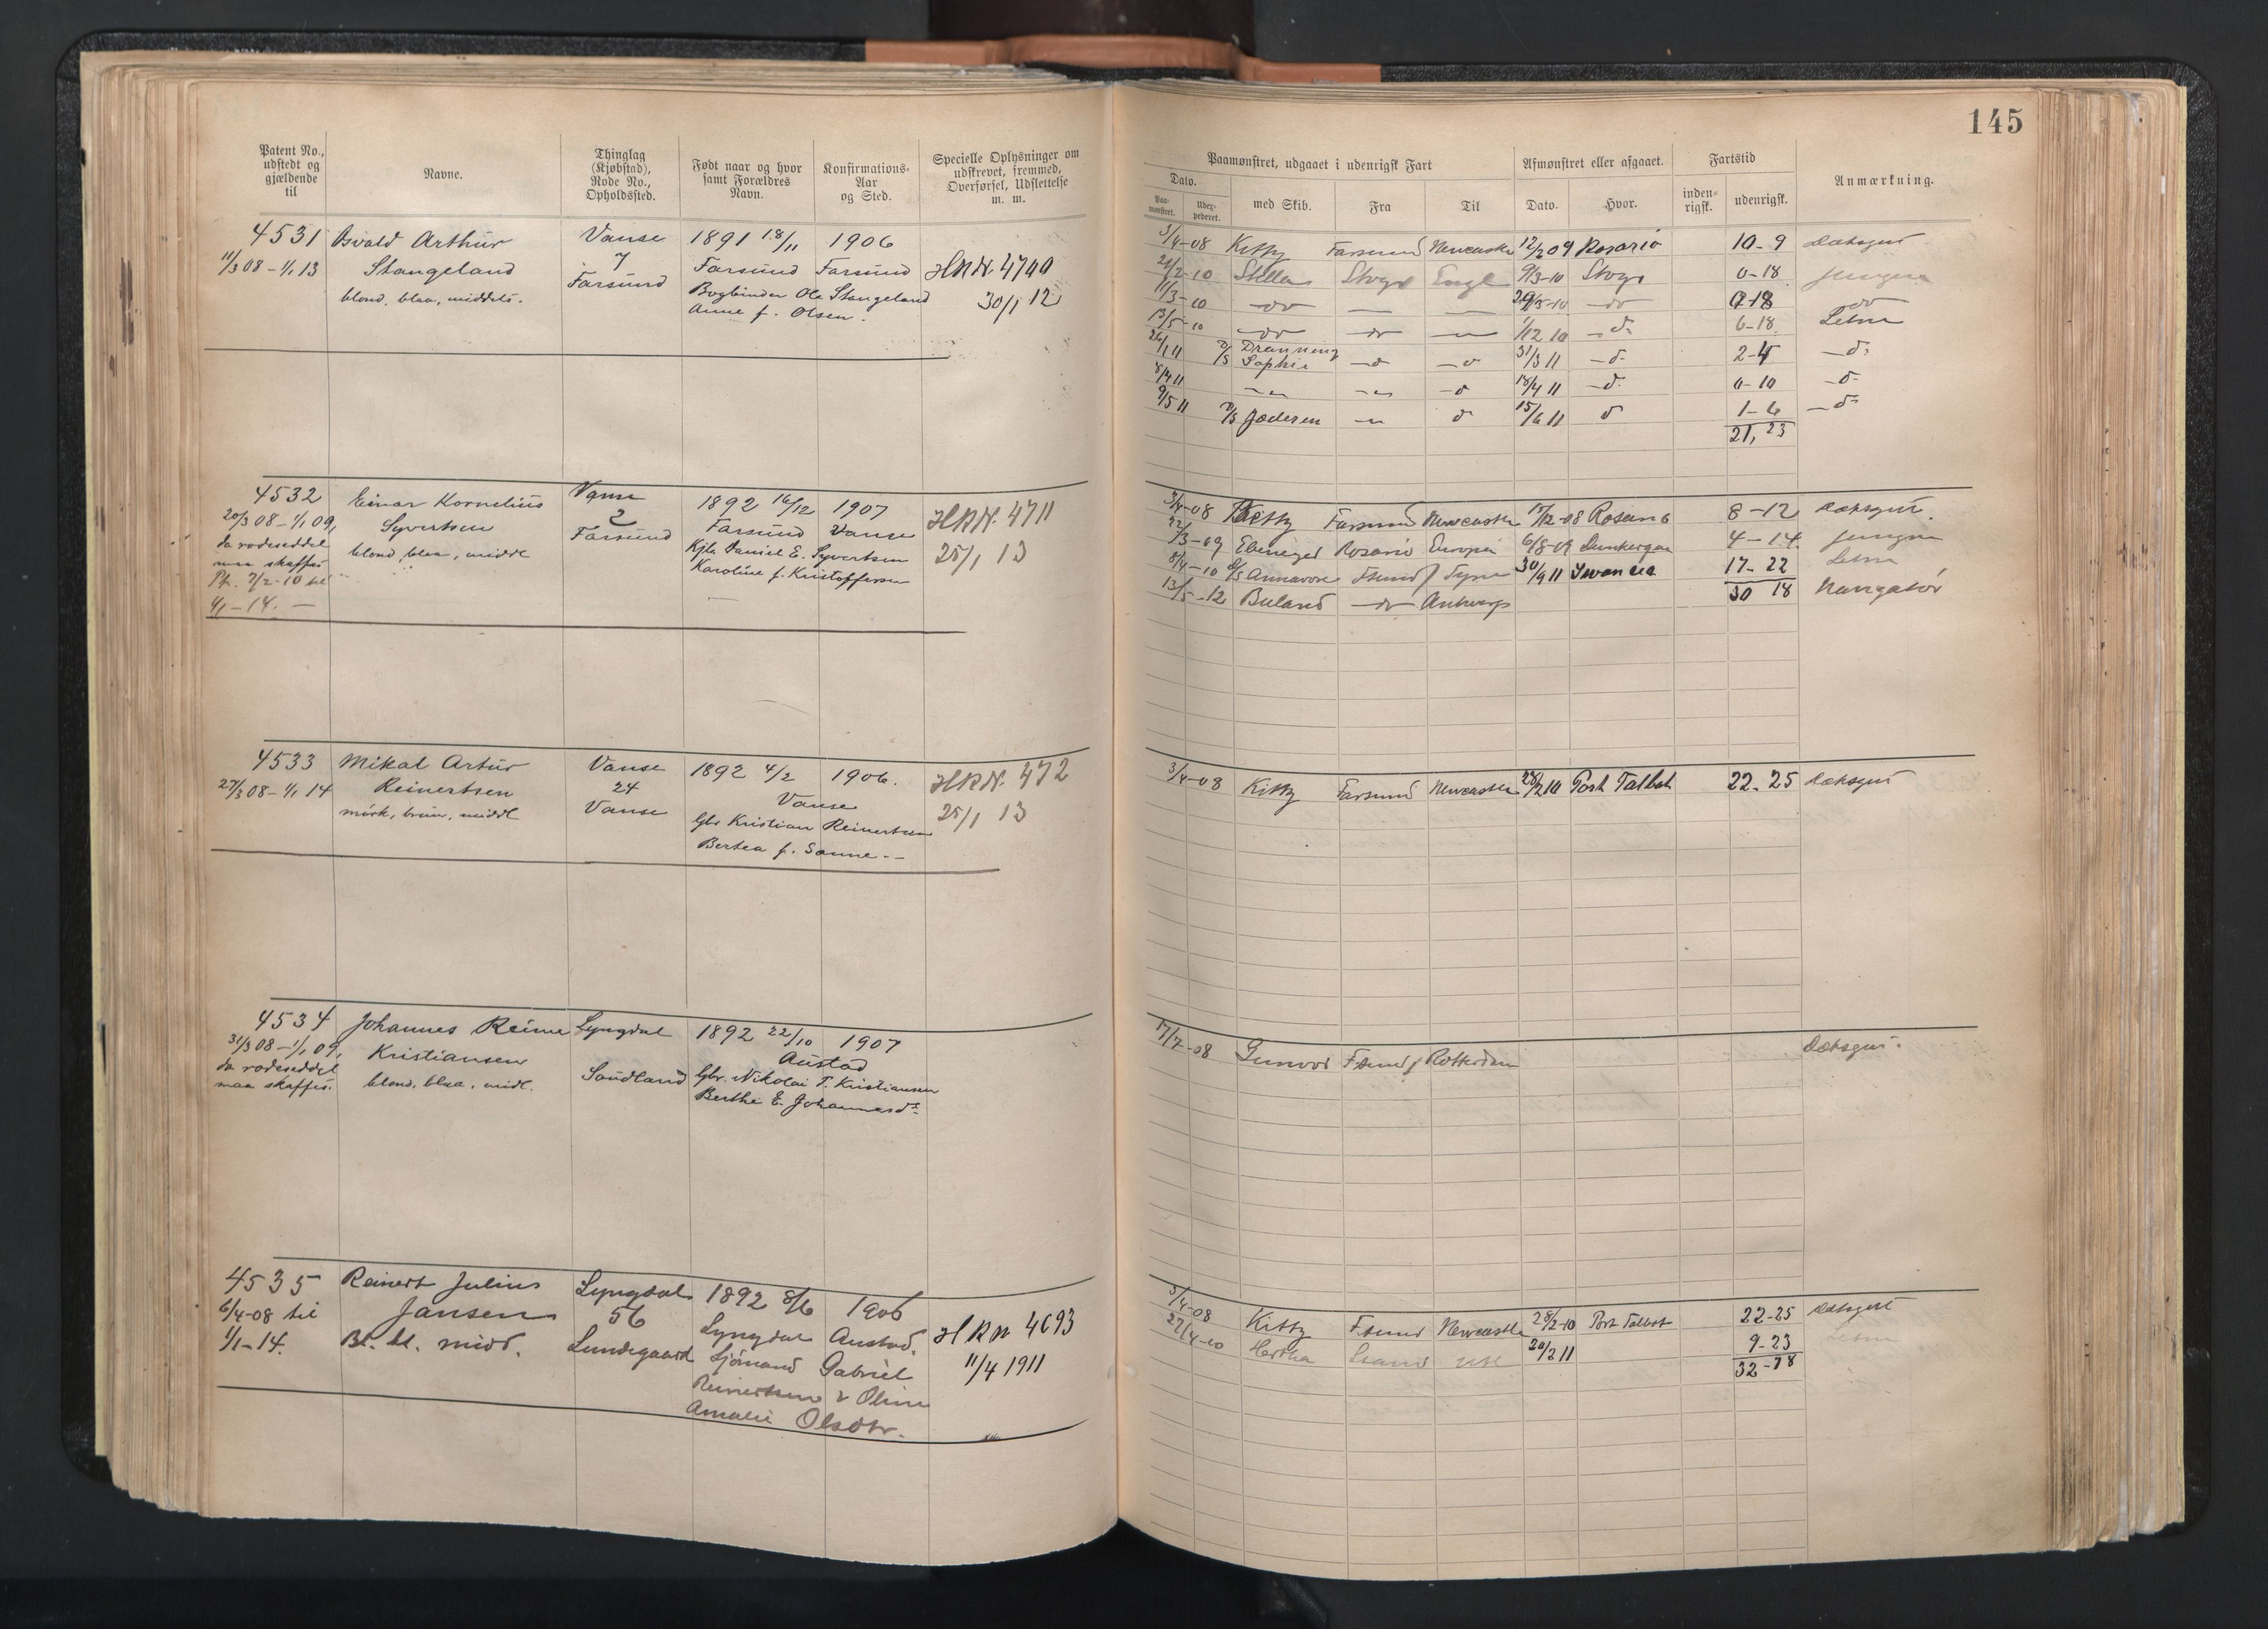 145
Patent No., udstedt og gjældende til
Navne.
Thinglag (Kjøbstad), Rode No., Opholdssted.
Født naar og hvor samt Forældres Navn.
Konfirmations-Aar og Sted.
Specielle Oplysninger om udskrevet, fremmed, Overførsel, Udslettelse m. m.
Paamønstret, udgaaet i udenrigsk Fart
Afmønstret eller afgaaet.
Fartstid
Anmærkning.
Dato.
Paa-mønstret.
med Skib.
Fra
Til
Dato.
Hvor.
inden-rigsk.
udenrigsk.
4531 Osvald Arthur Vanse 1891 18/11 1906
11/3 08 – 1/1 13 Stangeland 7 Farsund Farsund HRN. 4740
blond, blaa, middels. Farsund Bogbinder Ole Stangeland 30/1 12
Anne f. Olsen.
3/4-08 Kitty Farsund Newcastle 12/2 09 Rosario 10-9 Dæksgut
21/2-10 Stella Stvgr Engl 9/3-10 Stvgr 0-18 Jungm
11/3-10 do — — 29/3-10 do 0-18 do
13/5-10 do do — 1/12 10 d. 6-18 Letm
26/1 11 D/S Dronning Sophie d d 31/3 11 d. 2-4 d.
8/4 11 — — d 18/4 11 d. 0-10 d.
9/5 11 D/S Jæderen — d 15/6 11 d 1-6 d.
21, 23
4532 Einar Kornelius Vanse 1892 16/12 1907 HRN. 4711
20/3 08 – 1/1 09, Syvertsen 2 Farsund Vanse 25/1 13
da rodeseddel blond, blaa, middl Farsund Kjler Daniel E. Syvertsen
maa skaffes Karoline f. Kristoffersen
Pt. 7/2-10 til
1/1 – 14. —
3/4-08 Kitty Farsund Newcastle 17/12-08 Rosario 8-12 Dæksgut.
22/3-09 Ebenezer Rosario Europa 6/8-09 Dunkerque 4-14. Jungm
8/4-10 D/S Annavore Fsund Tyne 30/9 11 Swansea 17-22 Letm
13/5-12 Buland do Antwerp 30 18 Navigatør
4533 Mikal Artur Vanse 1892 4/2 1906. HRN. 472
27/3 08 – 1/1 14 Reinertsen 24 Vanse 25/1 13
mörk, brun, middl Vanse Gbr Kristian Reinertsen
Bertea f. Sanne. -
3/4-08 Kitty Farsund Newcastle 28/2 10 Port Talbot 22-25 Dæksgut
4534 Johannes Reime Lyngdal 1892 22/10 1907
31/3 08 – 1/1 09, Kristiansen Austad
da rodeseddel blond, blaa, midl. Søndland Gbr. Nikolai T. Kristiansen
maa skaffes. Berthe E. Johannesdr.
17/7-08 Gunvor Fsund Rotterdam Dæksgut.
4535 Reinert Julius Lyngdal 1892 8/6 1906
6/4-08 til Jansen 56 Lyngdal Austad. HRN 4693
1/1-14. Bl. bl. midd. Lundegaard Sjömand Gabriel 11/4 1911
Reinertsen & Oline
Amalie Olsdtr.
3/4-08 Kitty Fsund Newcastle 28/2-10 Port Talbot 22-25 Dæksgut
27/4-10 Hertha 20/2 11 9-23 Letm
32-18